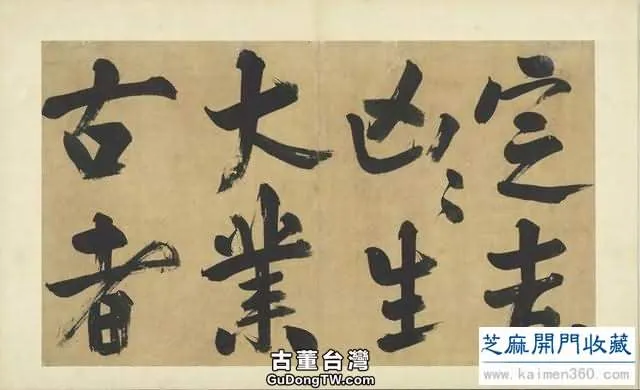 定吉
凶〻〻生
大業
古者
古董台灣
GuDongTW.com
芝麻開門收藏
www.kaimen360.com